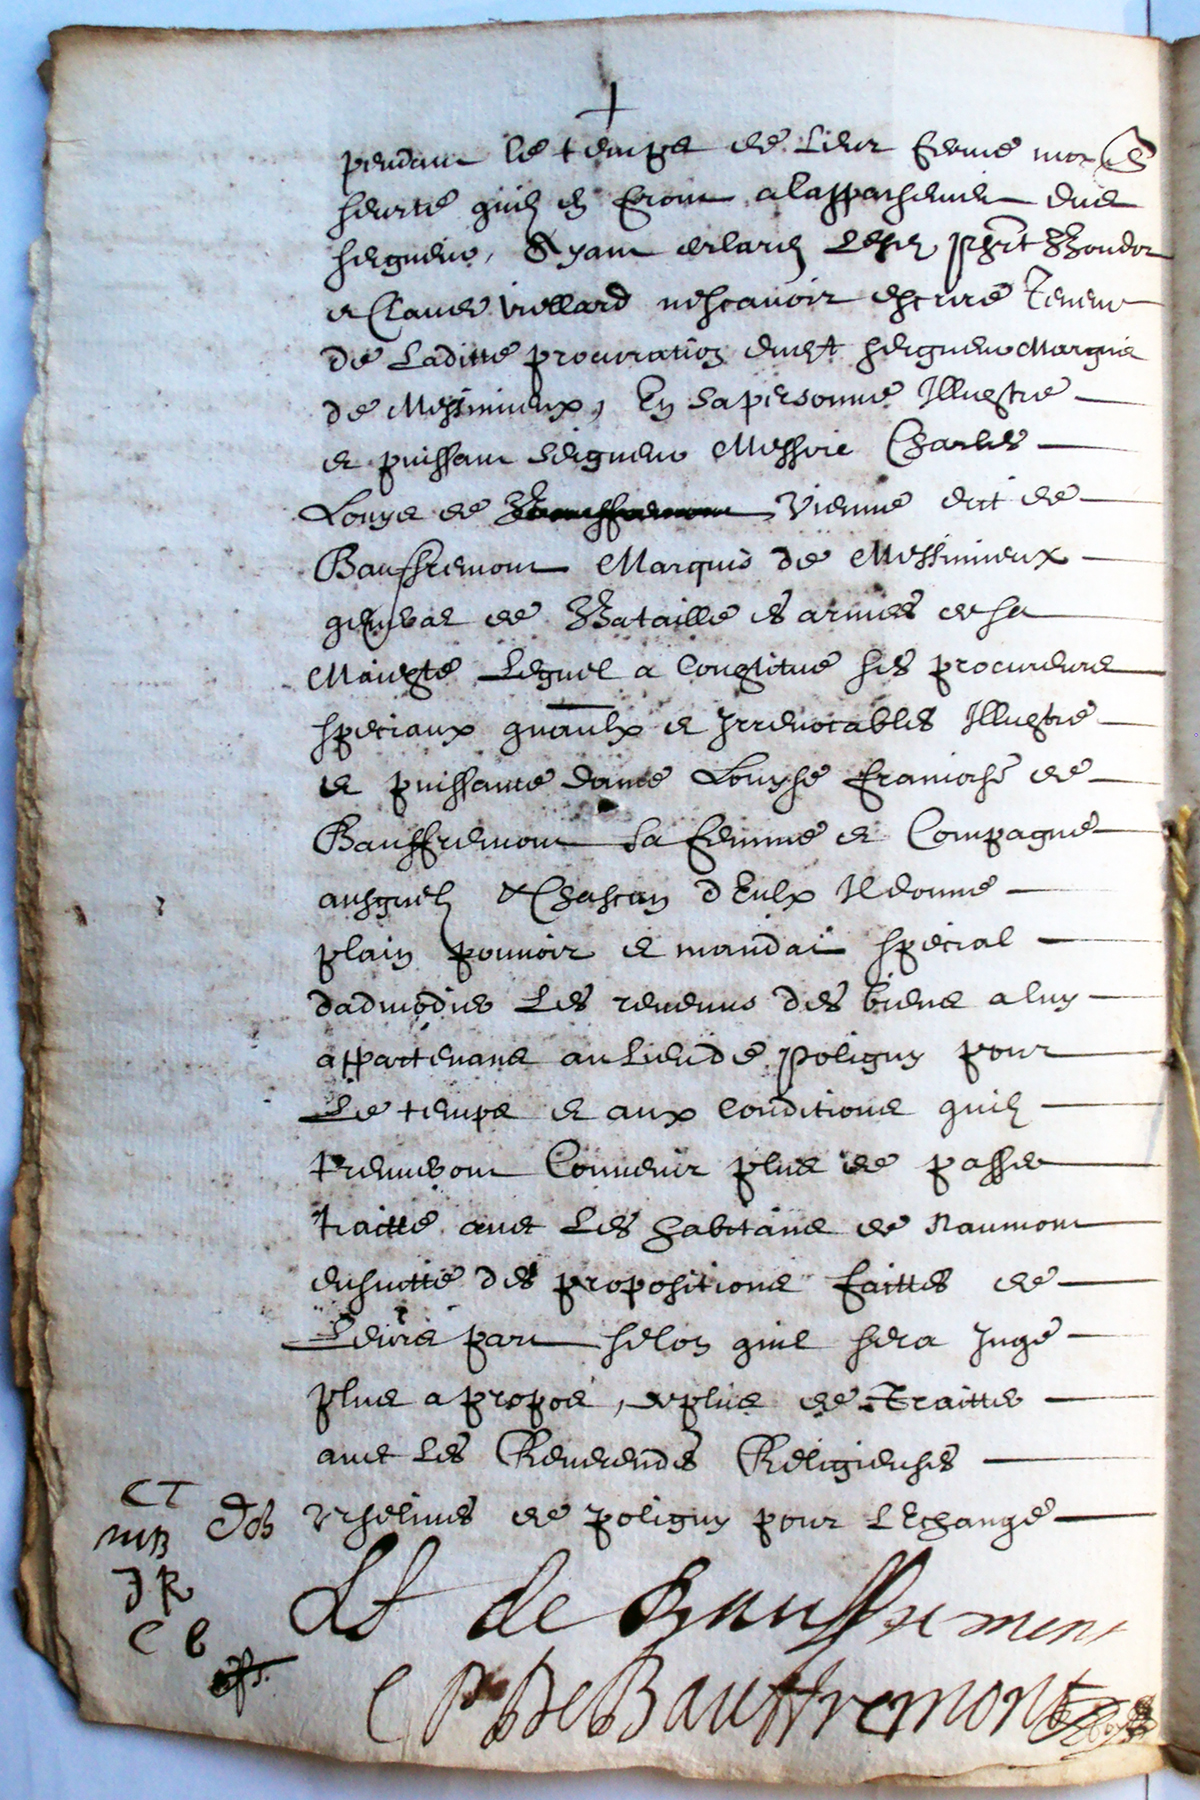 pendant le temps de Leur ferme
seurte quilz en feront a lappaisement dud
seigneur, Ayant declarez
et Claude viellard nescavoir escrire Teneur
de Laditte procuration dudt seigneur Marquis
de Messimieux, En sa personne Illustre
et puissant seigneur Messire Charles
Louys de Vienne dit de
Bauffremont Marquis de Messimieux
general de Bataille es armees de sa
Maieste Lequel a Constitue ses procureurs
speciaux gnaulx et Irrevocables Illustre
et puissante dame Louyse francoise de
Bauffremont sa femme et Compagne
ausquelz & Chascun d Eulx Il donne
plain pouvoir et mandat special
dadmodier Les revenus des biens a luy
appartenans au Lieu de Poligny pour
Le temps et aux conditions quilz
treuveront Convenir plus de passer
traitté avec Les habitans de
ensuitte des propositions faittes de
Leurs part selon quil sera Juge
plus a propos, & plus de Traitter
avec Les Reverendes Religieuses
Urselines de poligny pour L Echange
CT
MB
JR
C B
de Bauffremont
C P De Bauffremont